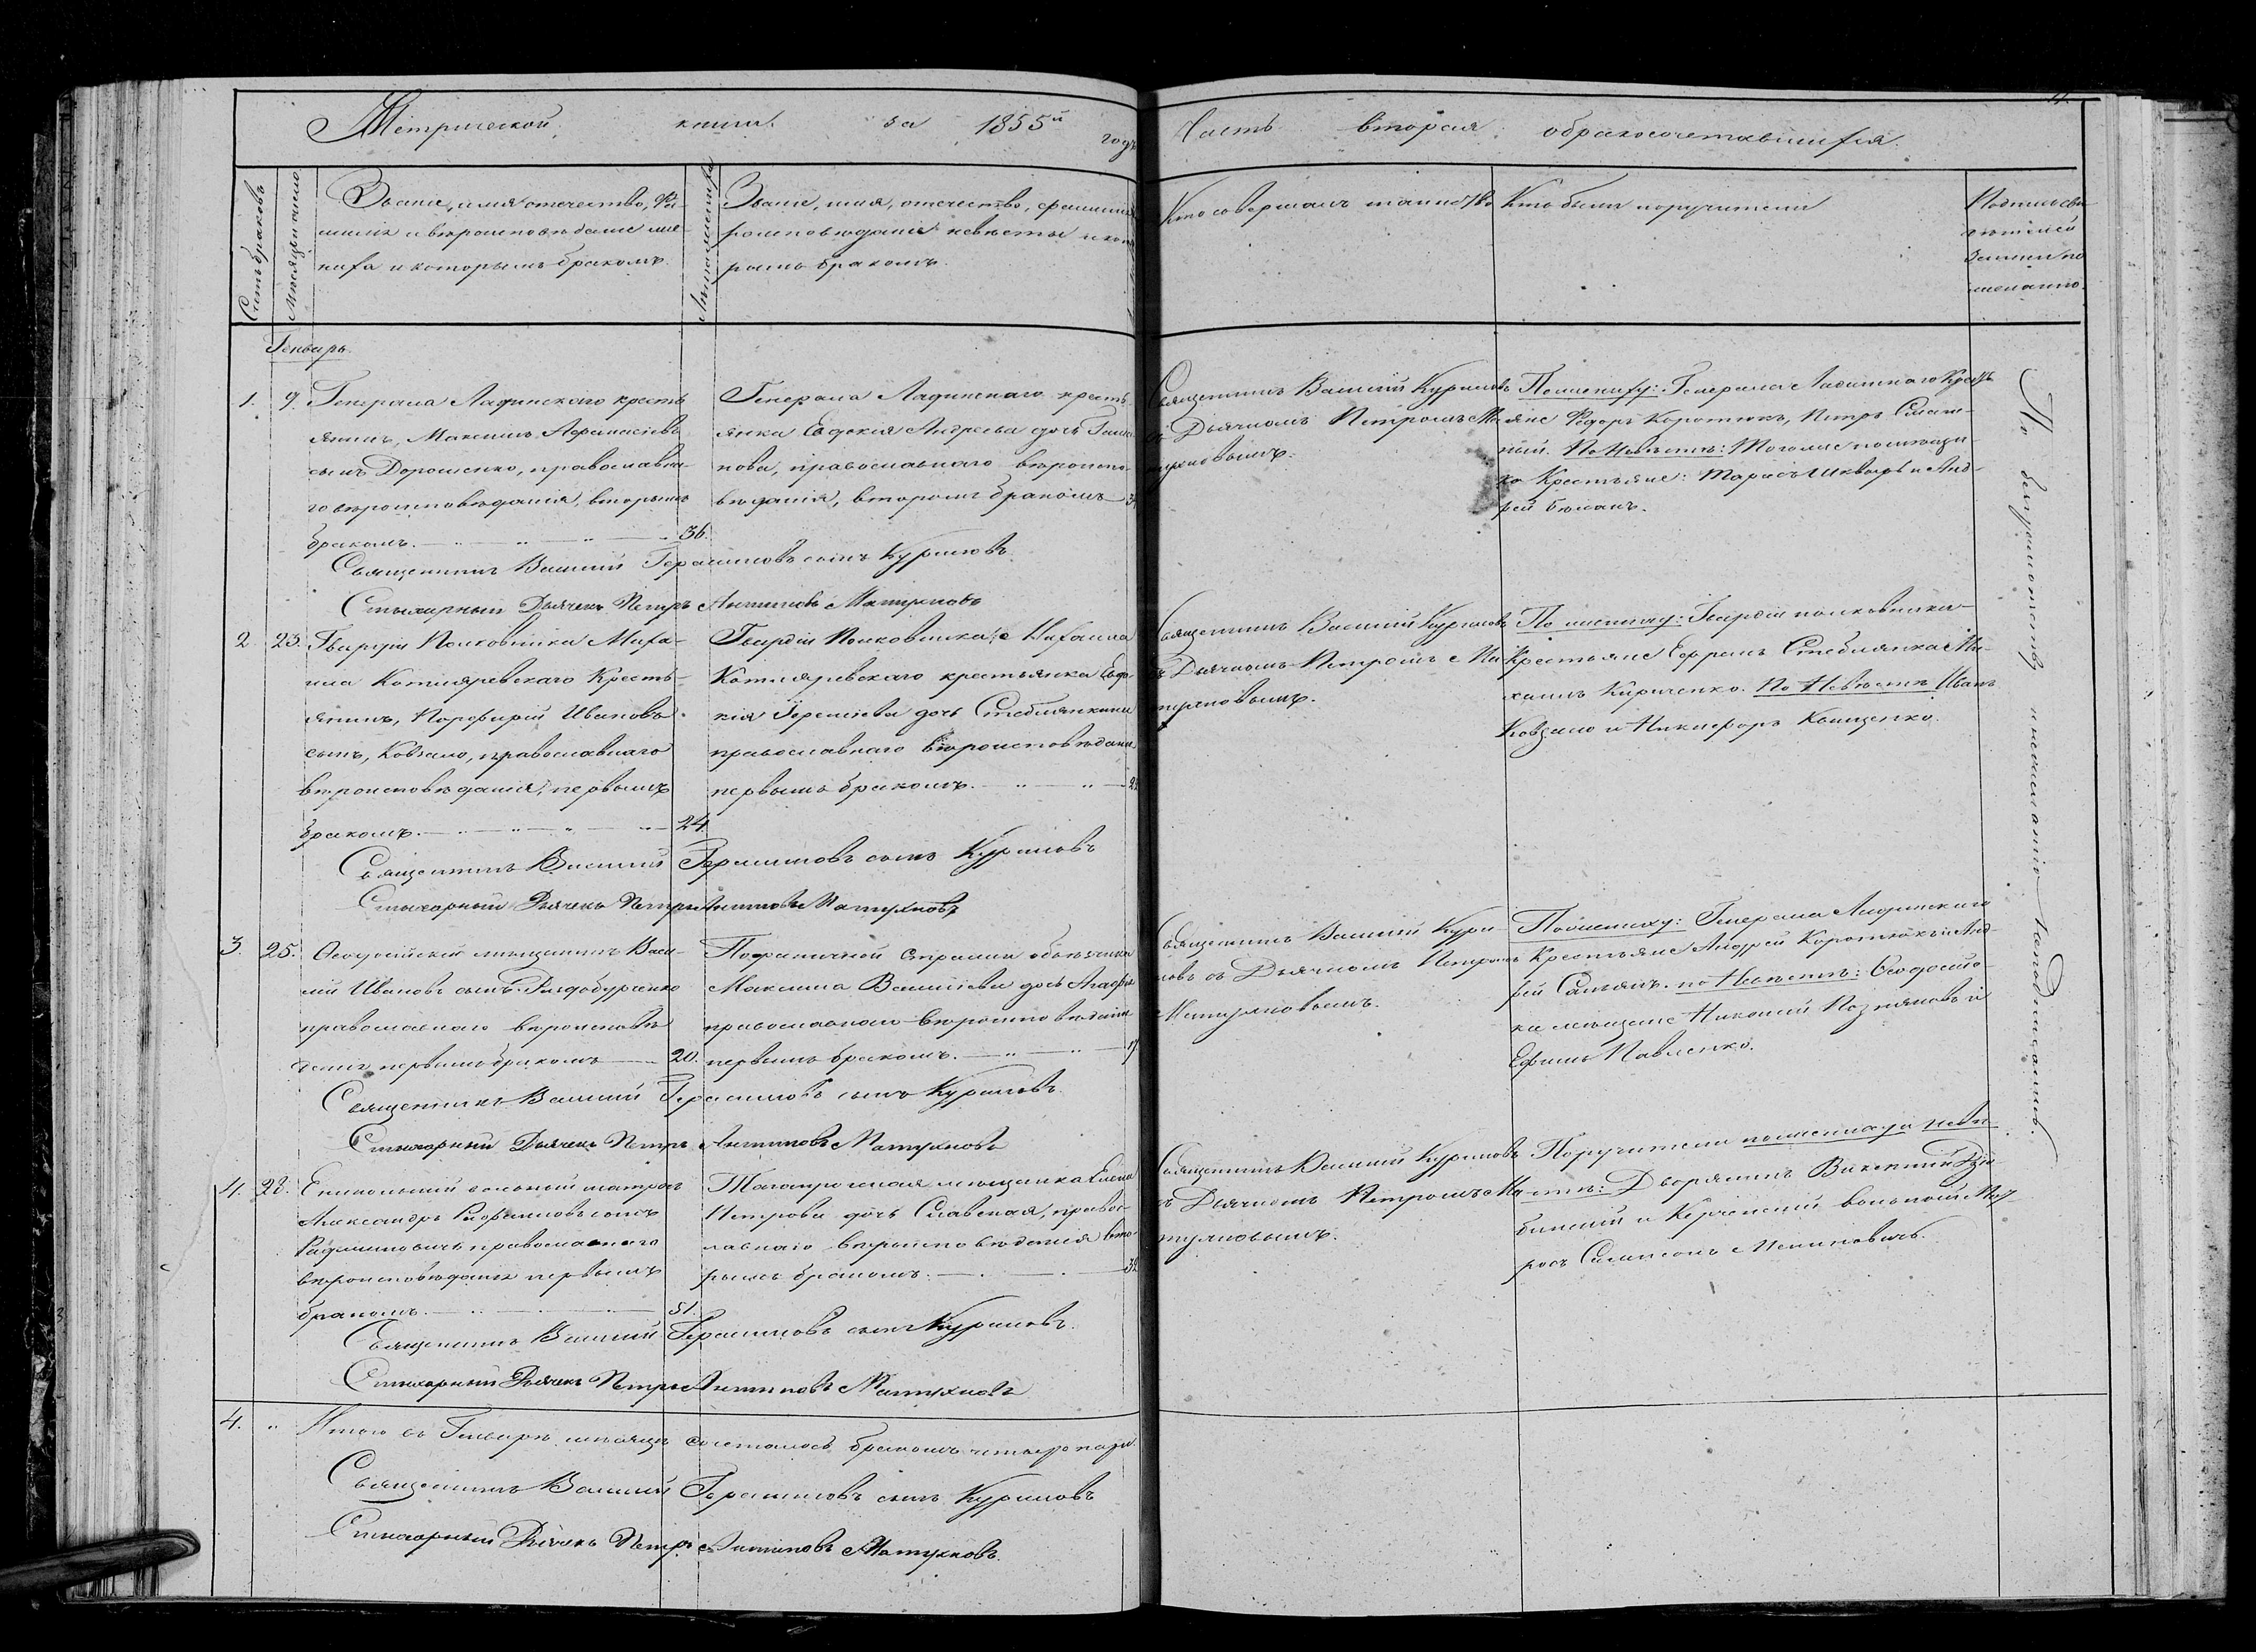 Метрической книги за 1855й годъ
Часть вторая о бракосочетавшихся.
Счетъ браковъ
Мѣсяцъ и число
Званіе, имя отечество, фа-
милія и вѣроисповѣданіе же-
ниха и которымъ бракомъ.
Лѣта жениха
Званіе, имя, отечество, фамилія
роисповѣданіе невѣсты и кото
рымъ бракомъ.
Кто совершалъ таинство
Кто были поручители
Подпись сви
дѣтелей
записи по
желанію.
Генварь.
1. 9. Генерала Ладинскаго кресть
янинъ, Максимъ Афанасіевъ
сынъ Дорошенко, православна-
го вѣроисповѣданія, вторымъ
бракомъ. 36.
Генерала Ладинскаго кресть
янка Евдокія Андреева дочь
нова, православнаго вѣроиспо-
вѣданія, вторымъ бракомъ
Священникъ Василій Куриловъ
съ Дьячкомъ Петромъ Ма
тухновымъ.
По жениху: Генерала Ладинскаго Кресть
яне Федоръ Коротюкъ, Петръ
ный. По Невѣстѣ: Тогоже помѣщи-
ка Крестьяне: Тарасъ Шкварь и Анд-
рей
Священникъ Василій Герасимовъ сынъ Куриловъ
Стихарный Дьячекъ Петръ Антиповъ Матухновъ
2. 23. Гвардіи Полковника Миха-
ила Котляревскаго Кресть-
янинъ, Порфирій Ивановъ
сынъ, Ковзало, православнаго
вѣроисповѣданія, первымъ
бракомъ. 24.
Гвардіи Полковника Михаила
Котляревскаго крестьянка Евдо
кія Іереміева дочь Стеблянкина
православнаго вѣроисповѣданія
первымъ бракомъ. 22
Священникъ Василій Куриловъ
съ Дьячкомъ Петромъ Ма
тухновымъ.
По жениху: Гвардіи полковника
Крестьяне Ефремъ Стеблянка Ми-
хаилъ Кириченко. По Невѣстѣ Иванъ
Ковзало и Никифоръ Коищенко.
Священникъ Василій Герасимовъ сынъ Куриловъ
Стихарный Дьячекъ Петръ Антиповъ Матухновъ
3. 25. Ѳеодосійскій мѣщанинъ Васи-
лій Ивановъ сынъ
православнаго вѣроисповѣ
данія, первымъ бракомъ 20.
Пограничной Стражи объѣзчика
Максима Василіева дочь Агафія
православнаго вѣроисповѣданія
первымъ бракомъ. 17
Священникъ Василій Кури-
ловъ съ Дьячкомъ Петромъ
Матухновымъ.
По жениху: Генерала Ладинскаго
Крестьяне Андрей Коротюкъ и Анд-
рей по Невѣстѣ: Ѳеодосійс
кіе мѣщане Николай Позняковъ и
Ефимъ Павленко.
Священникъ Василій Герасимовъ сынъ Куриловъ.
Стихарный Дьячекъ Петръ Антиповъ Матухновъ
4. 28. Еникольскій вольный матросъ
Александръ сынъ
православнаго
вѣроисповѣданія первымъ
бракомъ. 51.
Таганрогская мѣщанка Елена
Петрова дочь Славская, правос-
лавнаго вѣроисповѣданія вто-
рымъ бракомъ. 32
Священникъ Василій Куриловъ
съ Дьячкомъ Петромъ Ма
тухновымъ.
Поручители по жениху и невѣ-
стѣ: Дворянинъ Викентій
бинскій и Керченскій вольный Мат
росъ Самсонъ
Священникъ Василій Герасимовъ сынъ Куриловъ.
Стихарный Дьячекъ Петръ Антиповъ Матухновъ
4. " Итого въ Генварѣ мѣсяцѣ сочеталось бракомъ четыре пары.
Священникъ Василій Герасимовъ сынъ Куриловъ
Стихарный Дьячекъ Петръ Антиповъ Матухновъ.
По безграмотству и нежеланію неподписались.